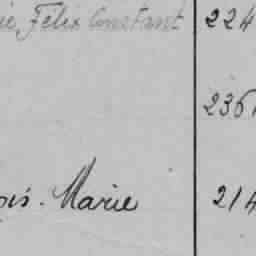 Félix Constant 224
236
Marie 214